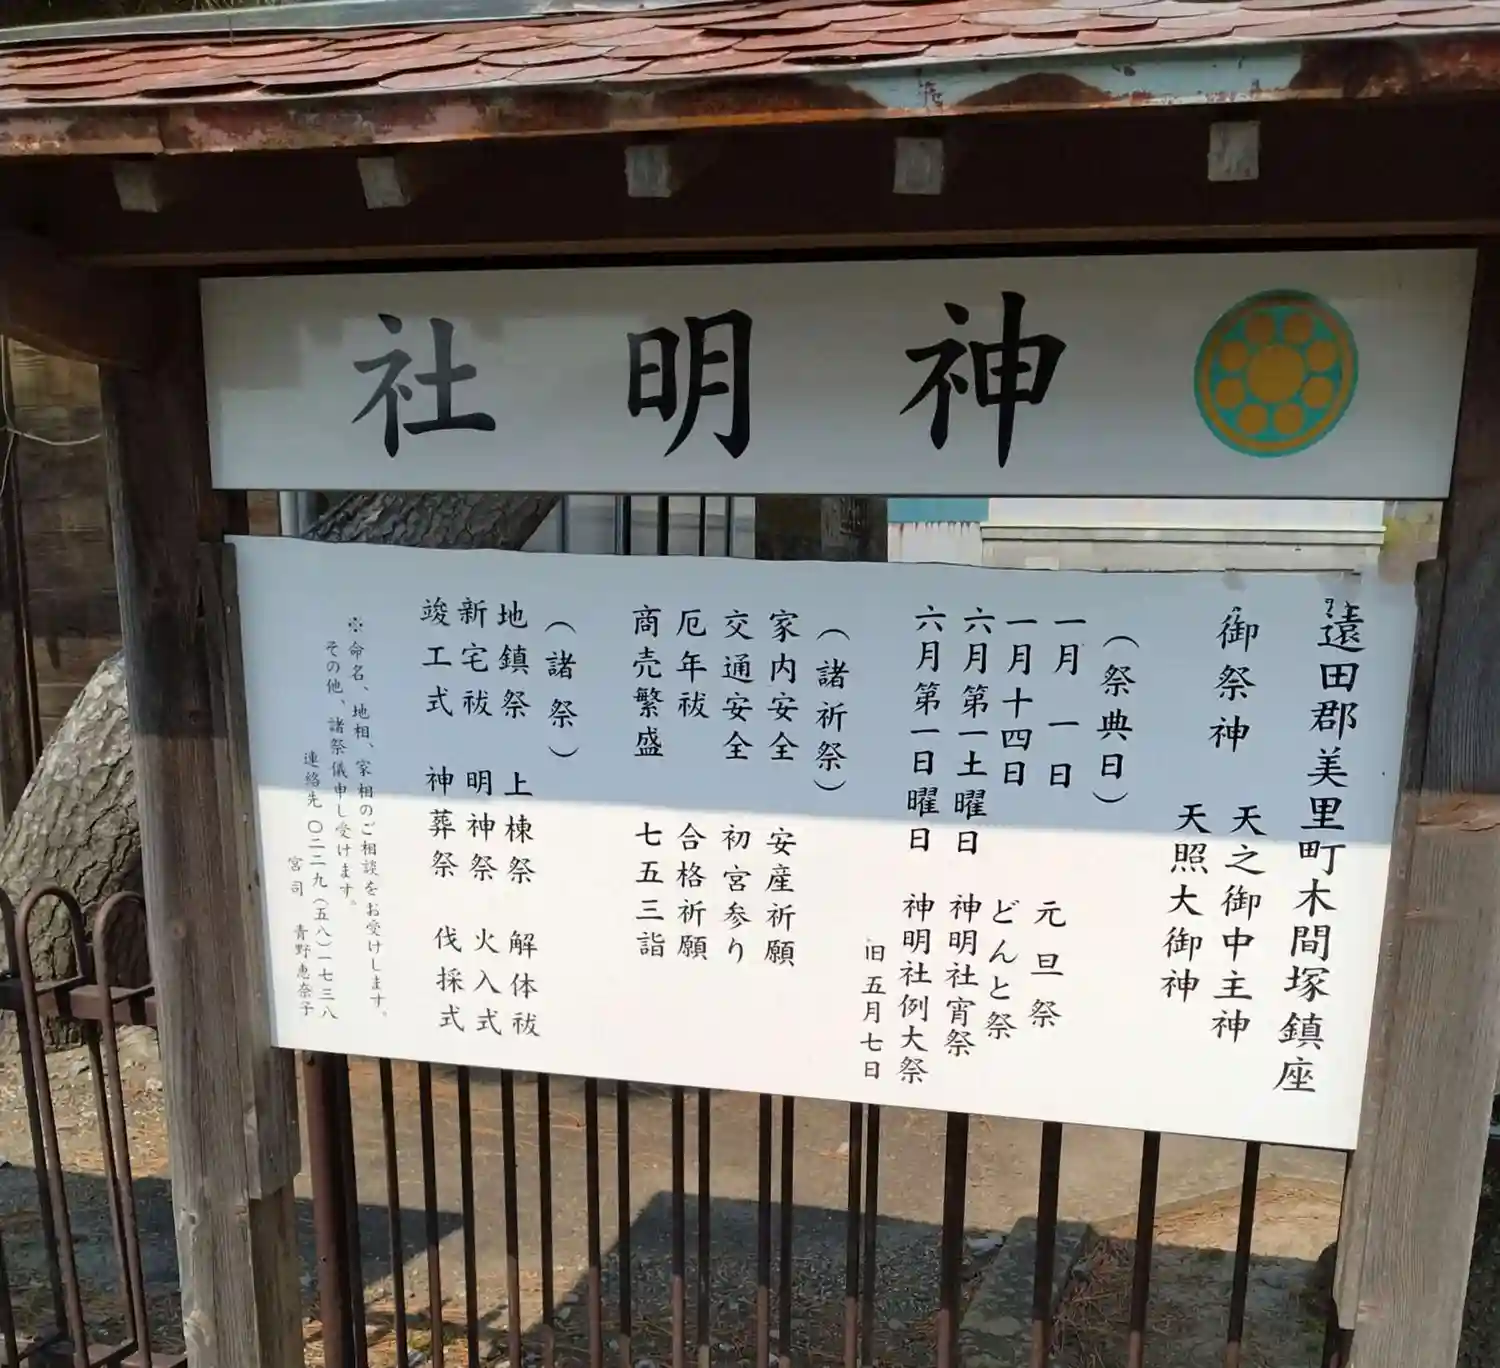 神明社
遠田郡美里町木間塚鎮座
御祭神 天之御中主神
天照大御神
（祭典日）
一月 一日 元旦祭
一月十四日 どんと祭
六月第一土曜日 神明社宵祭
六月第一日曜日 神明社例大祭
旧五月七日
（諸祈祭）
家内安全 安産祈願
交通安全 初宮参り
厄年祓 合格祈願
商売繁盛 七五三詣
（諸祭）
地鎮祭 上棟祭 解体祓
新宅祓 明神祭 火入式
竣工式 神葬祭 伐採式
※命名、地相、家相のご相談をお受けします。
その他、諸祭儀申し受けます。
連絡先 〇二二九（五八）一七三八
宮司 青野恵奈子